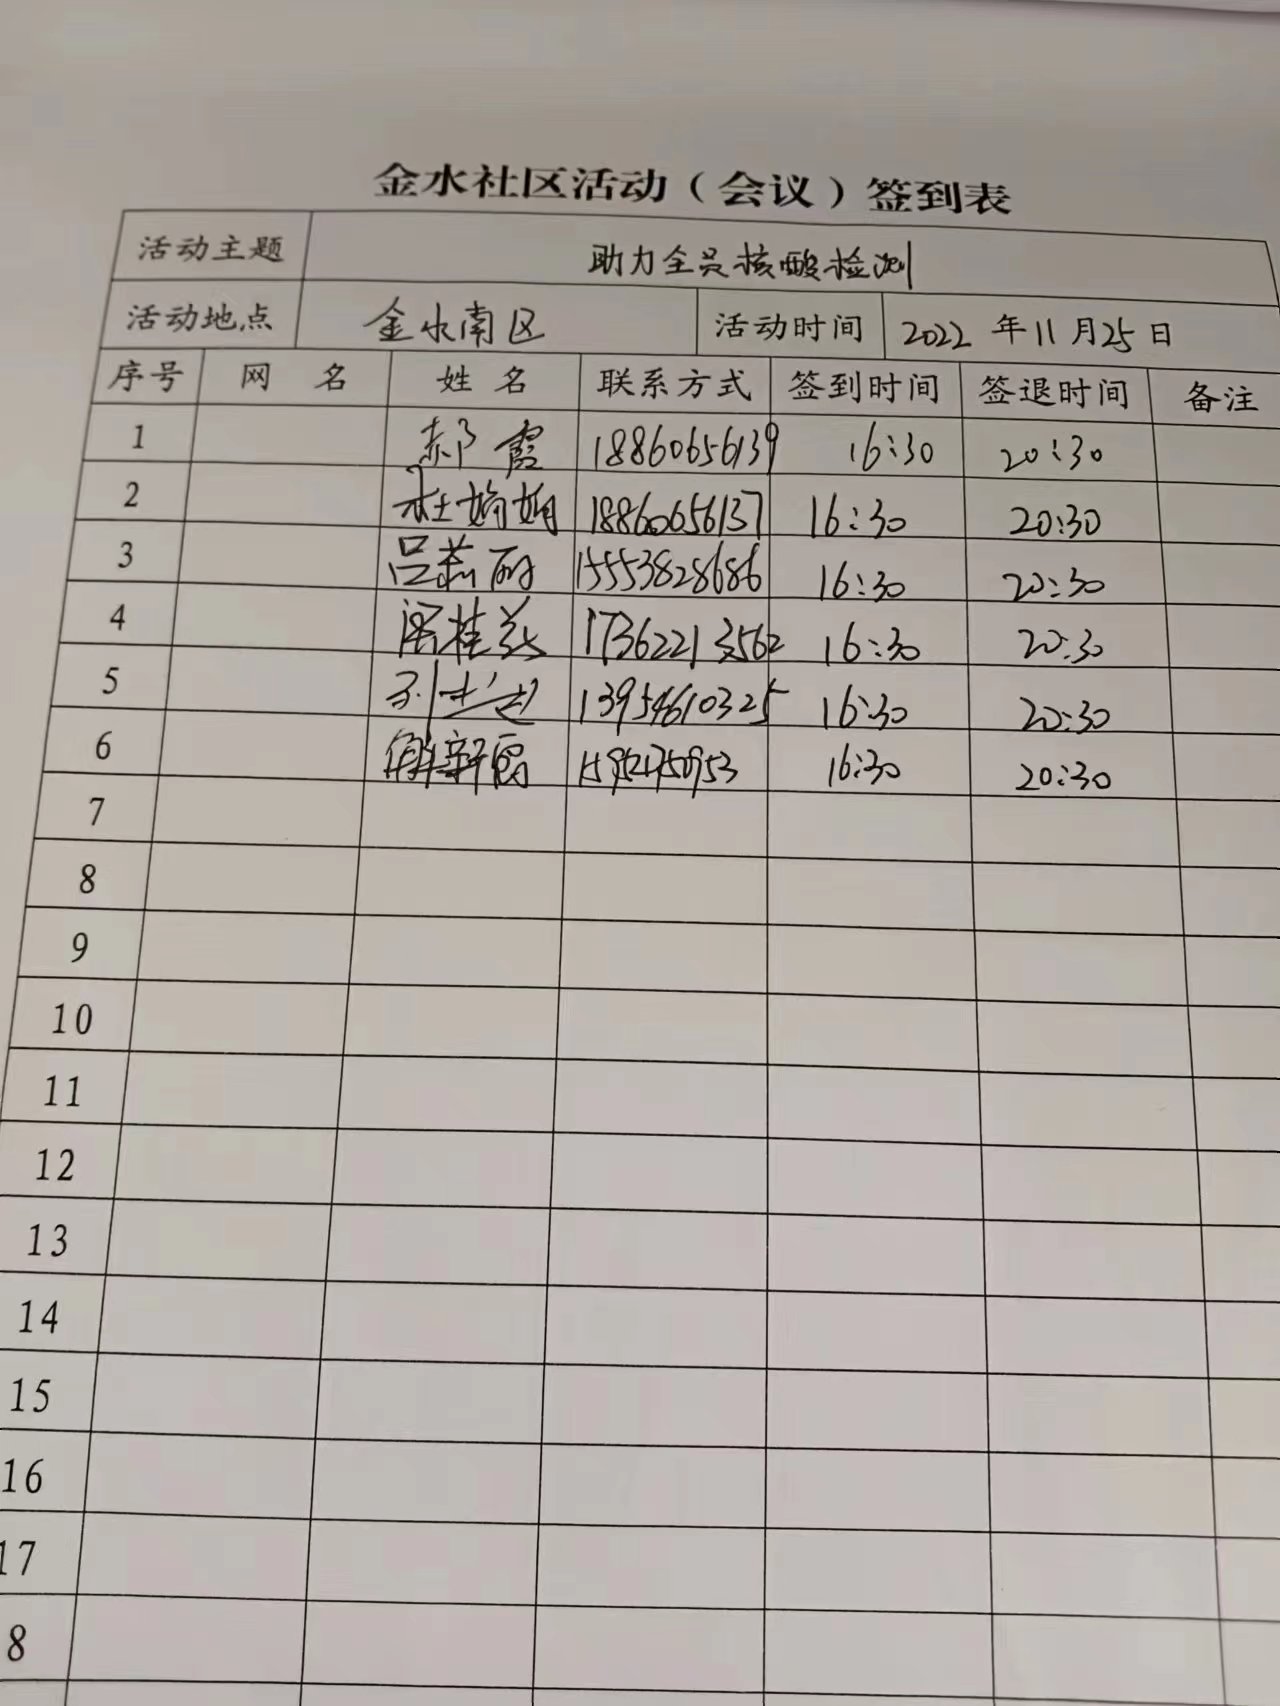 金水社区活动（会议）签到表
活动主题 助力全员核酸检测
活动地点 金水南区 活动时间 2022 年 11 月 25 日
序号 网 名 姓 名 联系方式 签到时间 签退时间 备注
1 郝霞 18860656139 16:30 20:30
2 杜娟娟 18860656137 16:30 20:30
3 吕燕丽 15553828686 16:30 20:30
4 桂兰 17362213562 16:30 20:30
5 刘 13954610325 16:30 20:30
6 解新霞 16:30 20:30
7
8
9
10
11
12
13
14
15
16
17
8